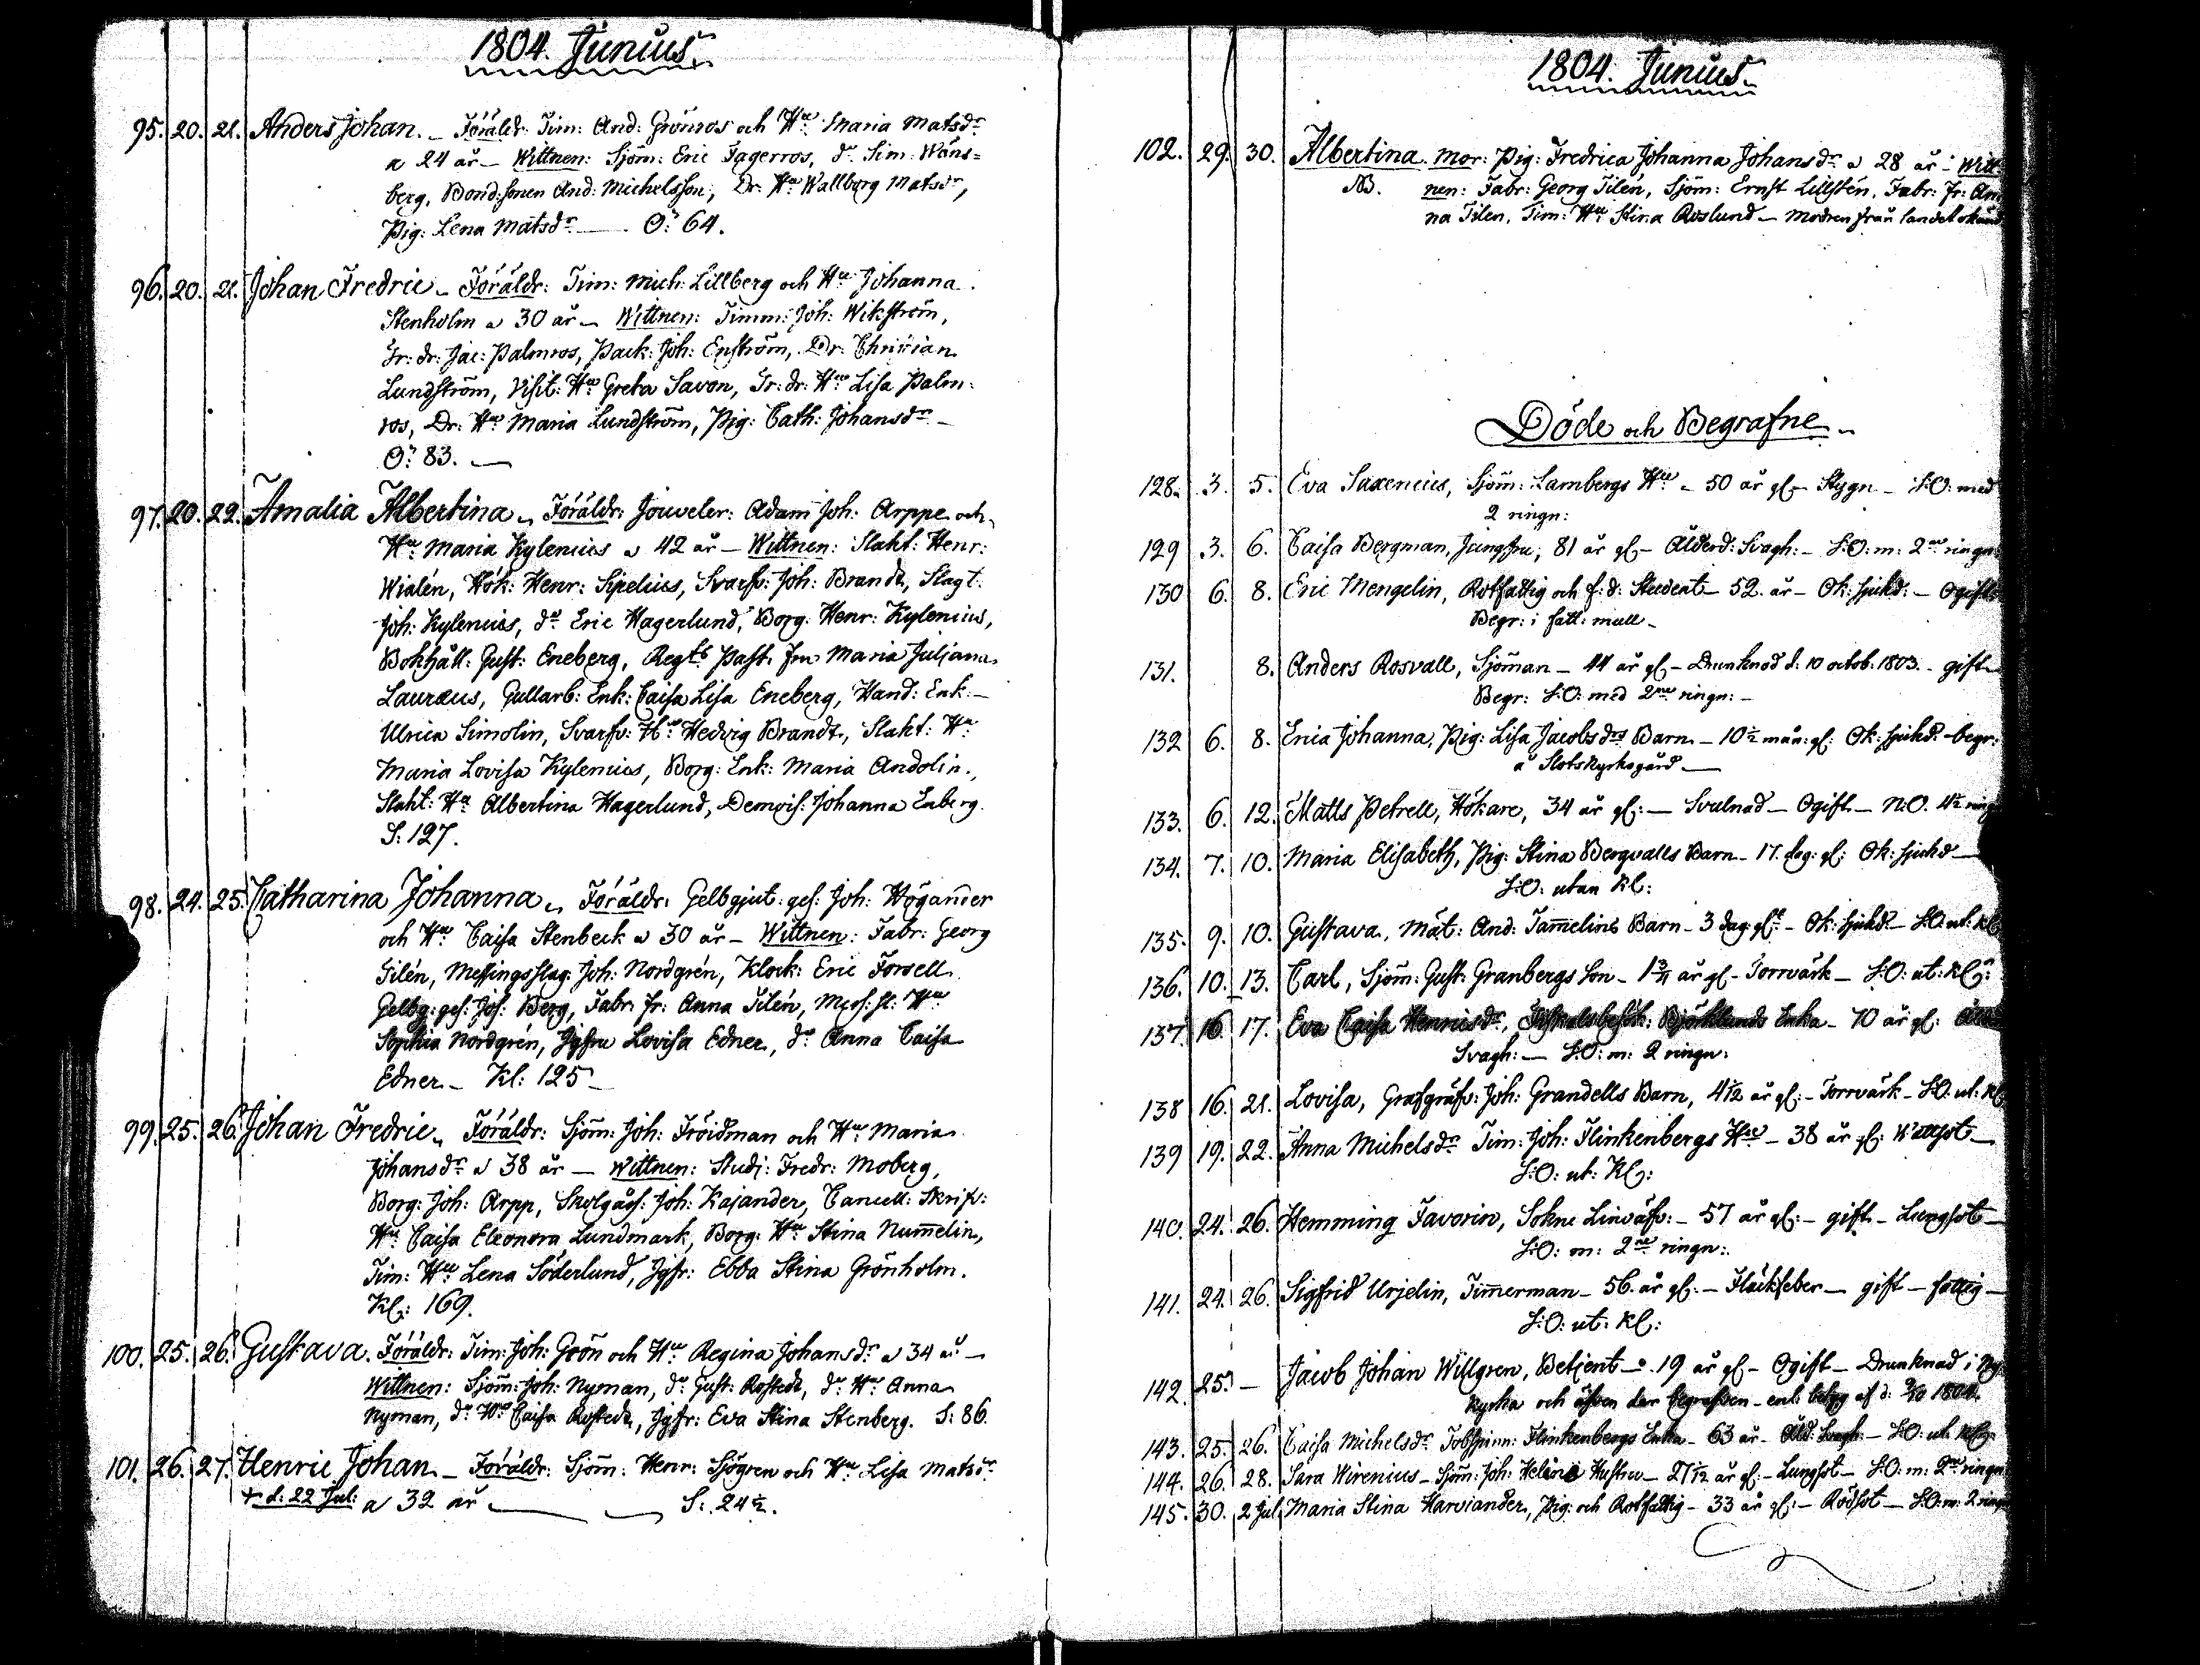 1804. Junius.
95. 20. 21. Anders Johan. – Föräldr: Tim: And: Grönros och Hu: Maria Matsdr
a 24 år – Wittnen: Sjöm: Eric Fagerros, do Sim: Wäns=
berg, Bond:sonen And: Michelsson, Dr: Hu Wallborg Matsdr,
Pig: Lena Matsdr – O: 64.
96. 20. 21. Johan Fredric – Föräldr: Tim: Mich: Lillberg och Hu Johanna
Stenholm a 30 år – Wittnen: Timm: Joh: Wikström,
Fr: dr: Jac: Palmros, Pack: Joh: Enström, Dr: Christian
Lundström, Visit: Hu Greta Savon, Fr: dr: Hu Lisa Palm:
ros, Dr: Hu Maria Lundström, Pig: Cath: Johansdr –
O: 83. –
97. 20. 22. Amalia Albertina – Föräldr: Jouveler: Adam Joh: Arppe och
Hu Maria Kylenius a 42 år – Wittnen: Slakt: Henr:
Wialén, Hök: Henr: Sipelius, Svarfv: Joh: Brandt, Slagt:
Joh: Kylenius, do Eric Hagerlund, Borg: Henr: Kylenius,
Bokhåll: Gust: Eneberg, Regts Past: Fru Maria Juliana
Lauræus, Gullarb: Enk: Caisa Lisa Eneberg, Hand: Enk: –
Ulrica Simolin, Svarfv: Hu Hedvig Brandt, Slakt: Hu
Maria Lovisa Kylenius, Borg: Enk: Maria Andolin,
Slakt: Hu Albertina Hagerlund, Demois: Johanna Enberg.
S: 127.
98. 24. 25. Catharina Johanna – Föräldr: Gelbgjut: ges: Joh: Högander
och Hu Caisa Stenbeck a 30 år – Wittnen: Fabr: Georg
Tilén, Messingsslag: Joh: Nordgrén, Klock: Eric Forsell
Gelbg: ges: Joh: Berg, Fabr: fr: Anna Tilén, Mess: sl: Hu
Sophia Nordgrén, Jgfru Lovisa Edner, do Anna Caisa
Edner – Kl: 125 –
99. 25. 26. Johan Fredric – Föräldr: Sjöm: Joh: Fröidman och Hu Maria
Johansdr a 38 år – Wittnen: Studi: Fredr: Moberg,
Borg: Joh: Arpp, Skolgås: Joh: Kajander, Cancell: Skrifv:
Hu Caisa Eleonora Lundmark, Borg: Hu Stina Numelin,
Tim: Hu Lena Söderlund, Jgfr: Ebba Stina Grönholm.
Kl: 169.
100. 25. 26. Gustava. Föräldr: Tim: Joh: Grön och Hu Regina Johansdr a 34 år –
Wittnen: Sjöm: Joh: Nyman, do Gust: Rostedt, do Hu Anna
Nyman, do Hu Caisa Rostedt, Jgfr: Eva Stina Stenberg. S: 86.
101. 26. 27. Henric Johan – Föräldr: Sjöm: Henr: Sjögren och Hu Lisa Matsdr
+ d: 22 Jul: a 32 år – S: 24½.
1804. Junius.
102. 29. 30. Albertina. Mor: Pig: Fredrica Johanna Johansdr a 28 år – Witt-
NB. nen: Fabr: Georg Tilén, Sjöm: Ernst Lillstén, Fabr: fr: An-
na Tilen, Tim: Hu Stina Roslund – Modren från landet okänd
Döde och Begrafne
128. 3. 5. Eva Saxenius, Sjöm: Lambergs Hu – 50 år gl – Stygn – S:O: med
2 ringn:
129 3. 6. Caisa Bergman, Jungfru, 81 år gl – Ålderd: Svagh: – S:O: m: 2ne ringn:
130 6. 8. Eric Mengelin, Rotfattig och f: d: Student – 52 år – Ok: sjukd: – Ogift
Begr: i fatt: mull –
131. 8. Anders Rosvall, Sjöman – 44 år gl – Drunknad d: 10 octob: 1803. – gift
Begr: S:O: med 2ne ringn: –
132 6. 8. Erica Johanna, Pig: Lisa Jacobsdrs Barn – 10½ mån: gl: Ok: sjukd: – begr:
å Slotskyrkogård –
133. 6. 12. Matts Petrell, Hökare, 34 år gl: – Svulnad – Ogift – N:O. 4½ ring
134. 7. 10. Maria Elisabeth, Pig: Stina Bergvalls Barn – 17. dag: gl: Ok: sjukd –
S:O: utan Kl:
135. 9. 10. Gustava, Mät: And: Tamelins Barn – 3 dag: gl: – Ok: sjukd – S:O: ut: kl
136. 10. 13. Carl, Sjöm: Gust: Granbergs Son – 1¾ år gl – Torrvärk – S:O: ut: kl:
137. 16. 17. Eva Caisa Henricsdr, Björklunds Enka – 70 år gl:
Svagh: – S:O: m: 2 ringn:
138 16. 21. Lovisa, Grafgräfv: Joh: Grandells Barn, 4 1/12 år gl: – Torrvärk – S:O: ut: kl
139 19. 22. Anna Michelsdr Tim: Joh: Flinkenbergs Hu – 38 år gl:
S:O: ut: Kl:
140. 24. 26. Hemming Favorin, Sokne Linväfv: – 57 år gl: – gift – Lungsot –
S:O: m: 2ne ringn:
141. 24. 26. Sigfrid Urjelin, Timerman – 56. år gl: – Fläckfeber – gift – fattig –
S:O: ut: Kl:
142. 25. – Jacob Johan Willgren, Betjent – 19 år gl – Ogift – Drunknad i Ny
kyrka och äfven der begrafven – enl: betyg af d: 1804.
143. 25. 26. Caisa Michelsdr Tobspinn: Flinkenbergs Enka – 63 år – Åld: Svagh: – S:O: ut: Kl:
144. 26. 28. Sara Wirenius – Sjöm: Joh: Helins Hustru – 27 1/12 år gl: – Lungsot – S:O: m: 2ne ringn
145. 30. 2 Jul. Maria Stina Harviander, Pig: och Rotfattig – 33 år gl: – Rödsot – S:O: m: 2 ringn